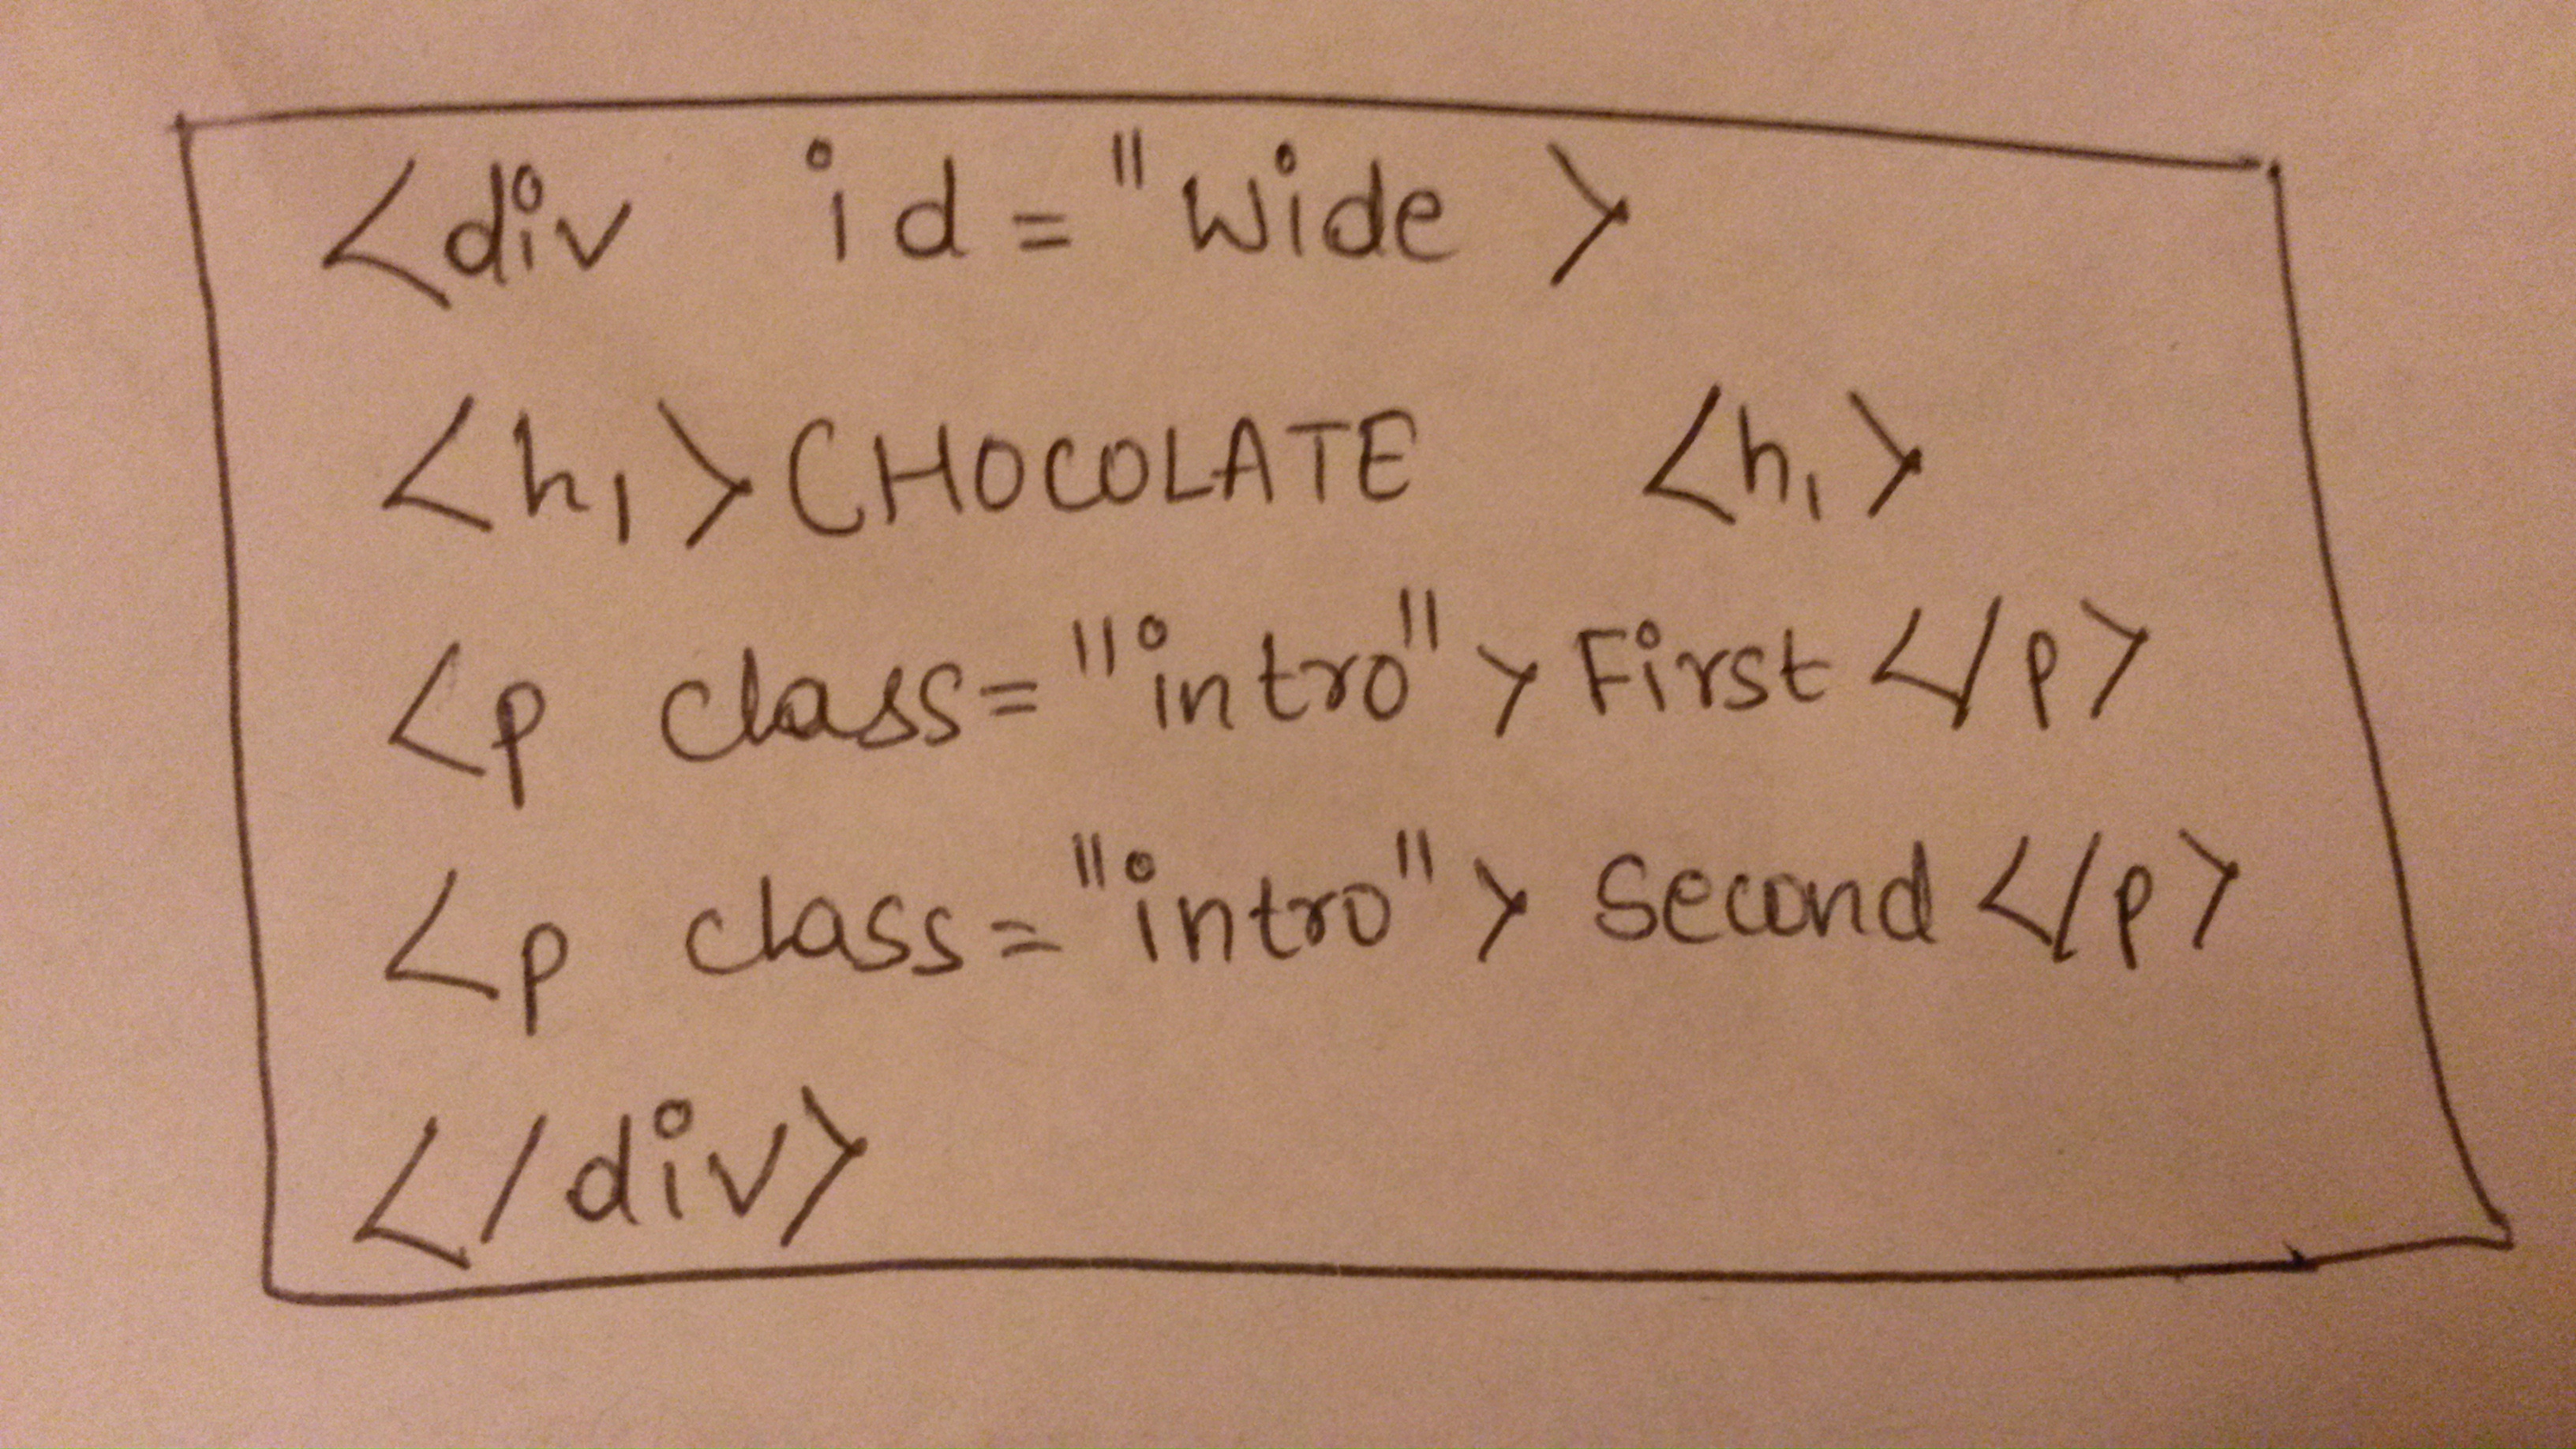 <div id="wide >
<h1>CHOCOLATE <h1>
<p class="intro">First</p>
<p class="intro"> Second</p>
</div>